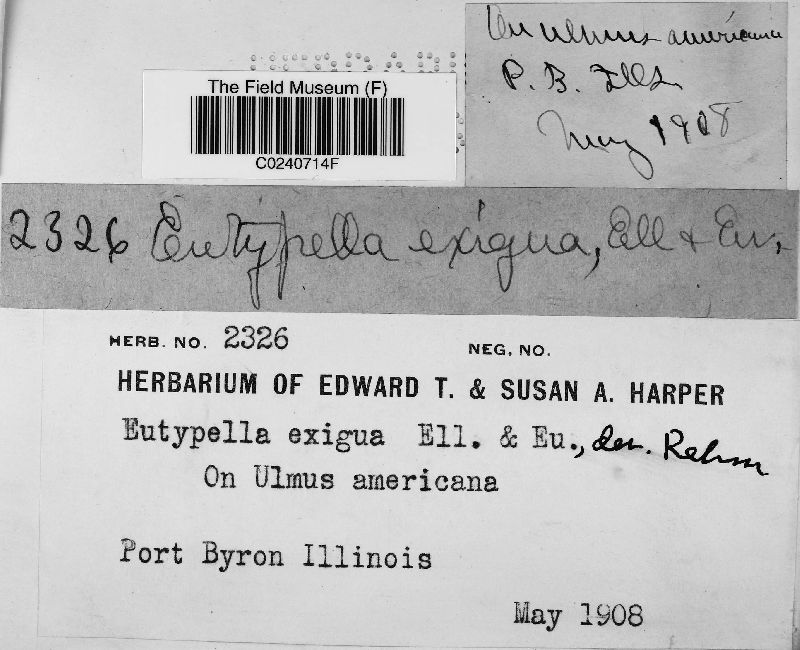 On Ulmus americana
P. B. Ills
May 1908
The Field Museum (F)
C0240714F
2326 Eutypella exigua, Ell & Ev.
HERB. NO. 2326
NEG. NO.
HERBARIUM OF EDWARD T. & SUSAN A. HARPER
Eutypella exigua Ell. & Eu., det. Rehm
On Ulmus americana
Port Byron Illinois
May 1908